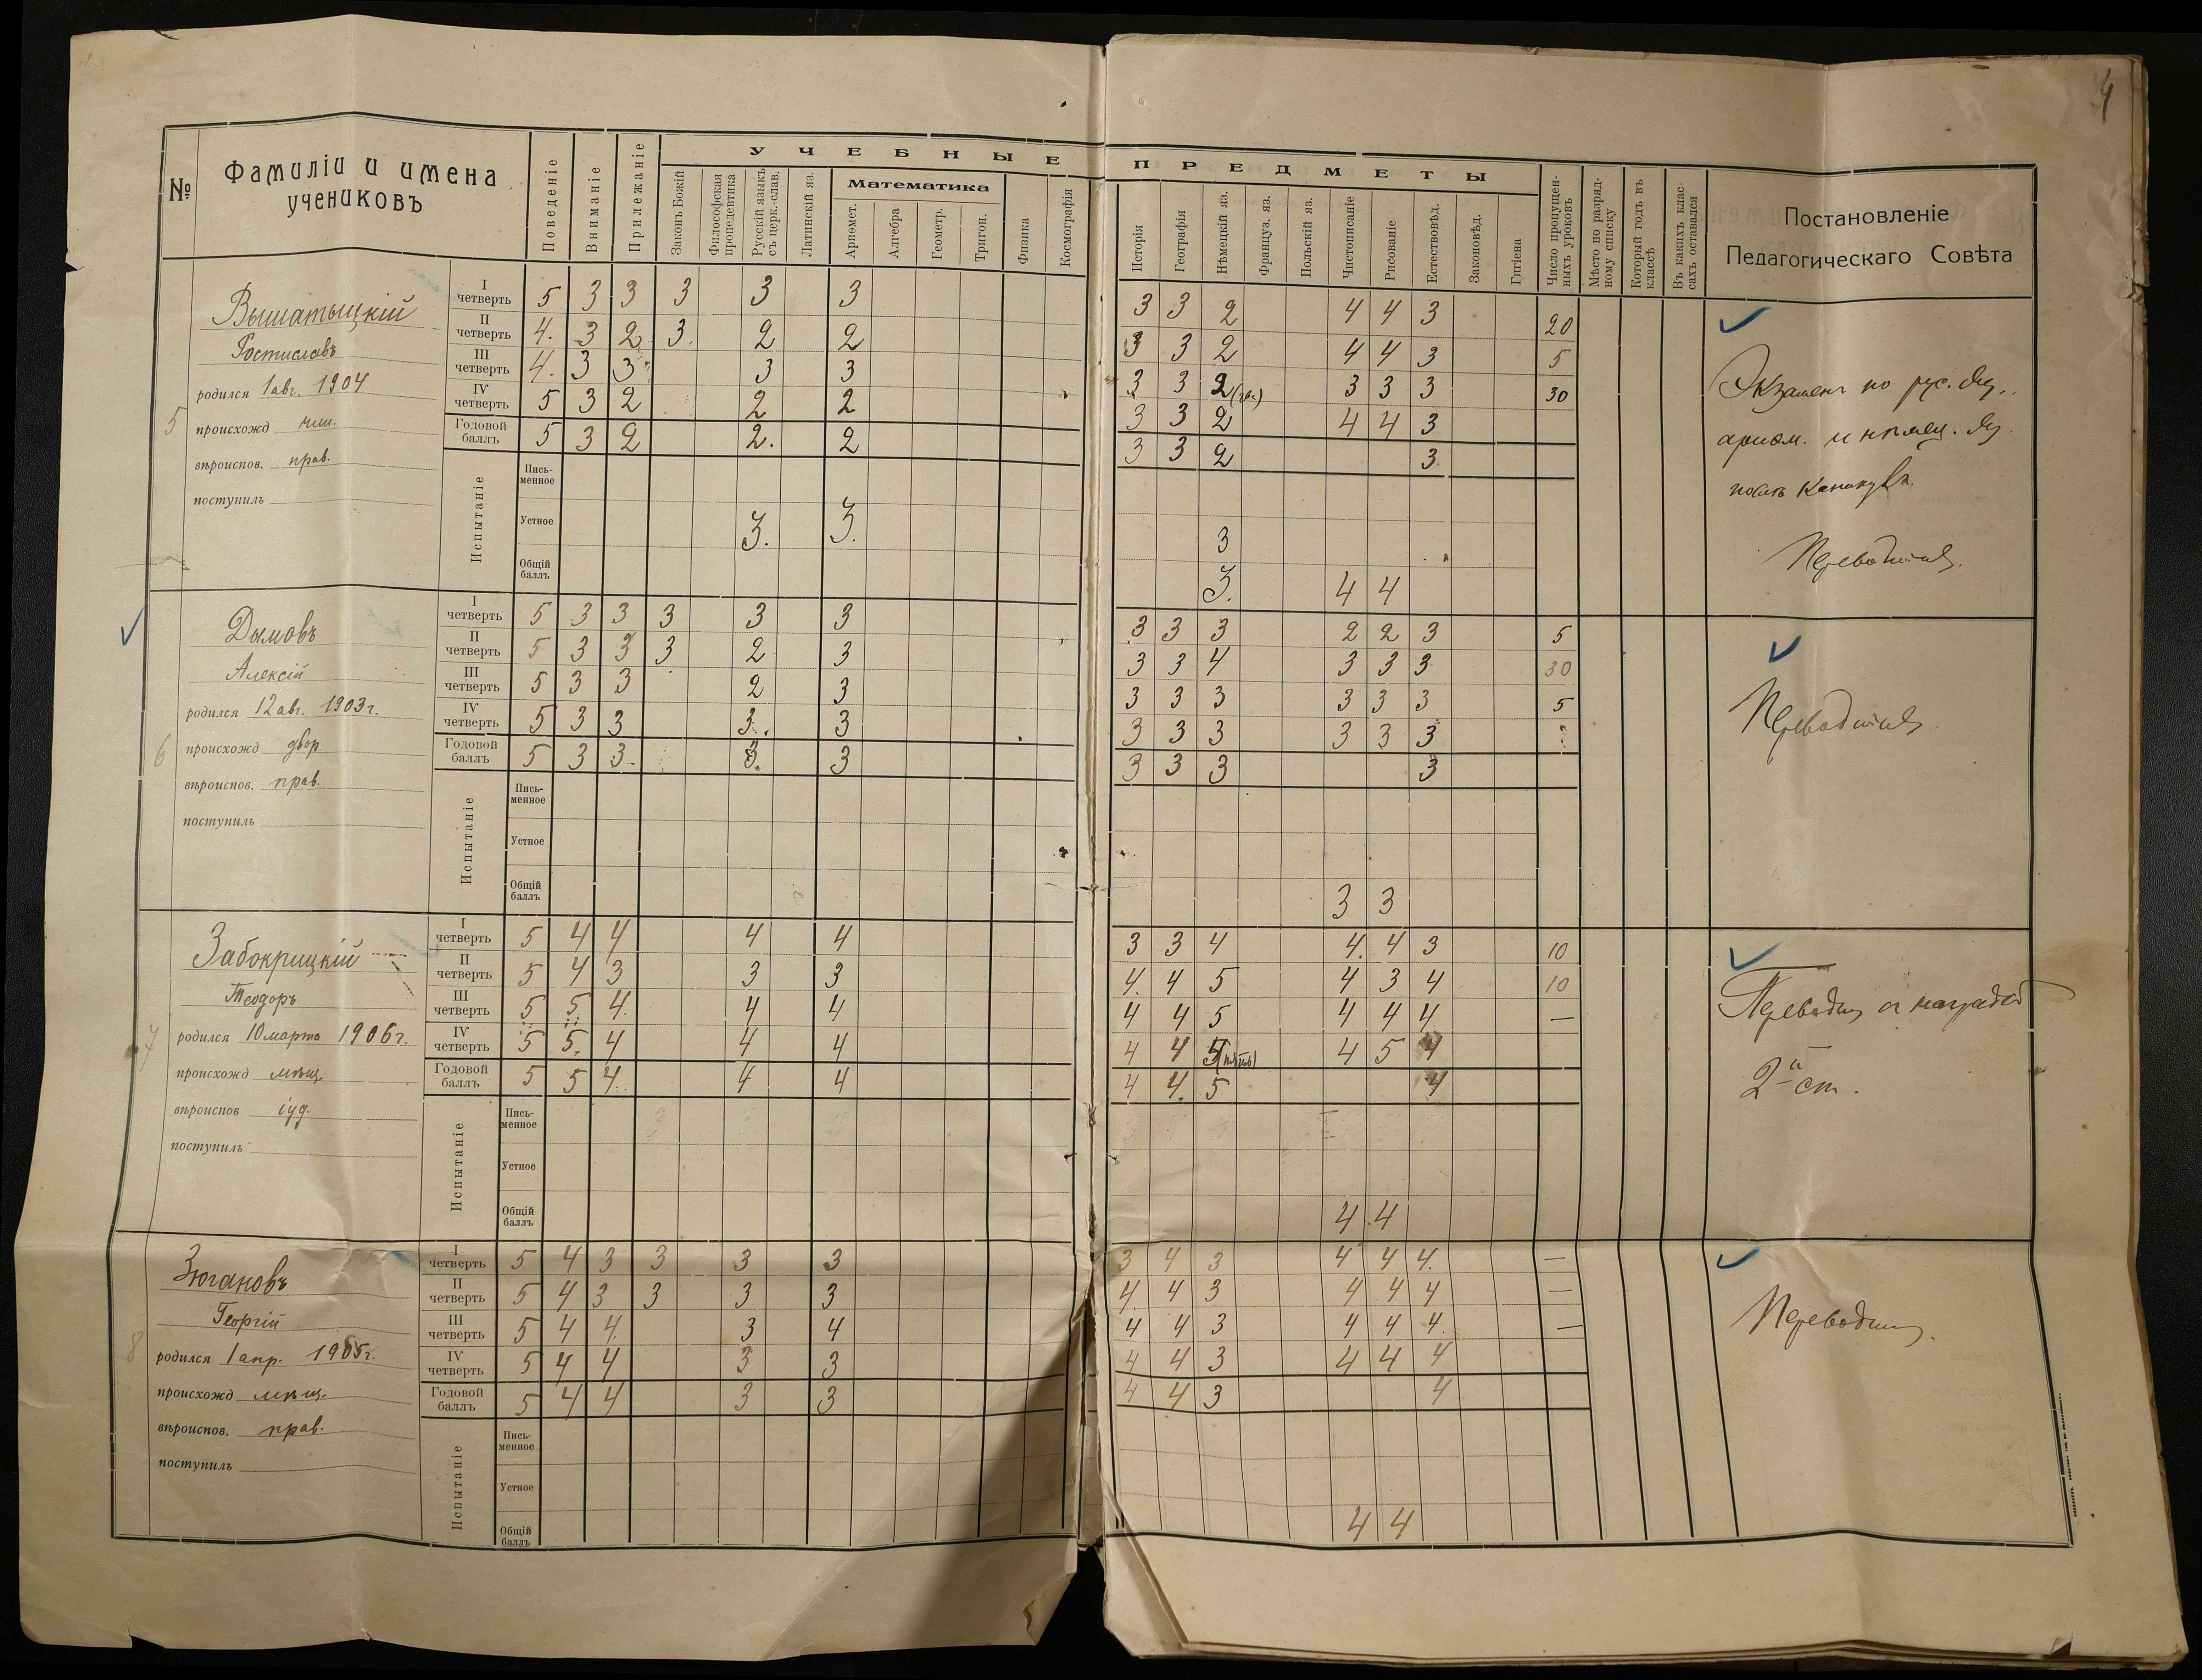 4
№
Фамиліи и имена
учениковъ
Поведеніе
Вниманіе
Прилежаніе
УЧЕБНЫЕ ПРЕДМЕТЫ
Законъ Божій
Философская
пропедевтика
Русскій языкъ
съ церк.-слав.
Латинскій яз.
Математика
Ариѳмет.
Алгебра
Геометр.
Тригон.
Физика
Космографія
Исторія
Географія
Нѣмецкій яз.
Француз. яз.
Польскій яз.
Чистописаніе
Рисованіе
Естествовѣд.
Законовѣд.
Гигіена
Число пропущен-
ныхъ уроковъ
Мѣсто по разряд-
ному списку
Который годъ въ
классѣ
Въ какихъ клас-
сахъ оставался
Постановленіе
Педагогическаго Совѣта
5
Вышатыцкій
Ростиславъ
родился 1 авг. 1904
происхожд чин.
вѣроиспов. прав.
поступилъ
I четверть 5 3 3 3 3 3 3 3 2 4 4 3 20
II четверть 4. 3 2 3 2 2 3 3 2 4 4 3 5
III четверть 4. 3 3 3 3 3 3 2 3 3 3 30
IV четверть 5 3 2 2 2 3 3 2 4 4 3
Годовой баллъ 5 3 2 2. 2 3 3 2 3
Испытаніе
Пись-
менное
Устное 3. 3. 3
Общій
баллъ 3. 4 4
Экзаменъ по рус. яз.,
ариѳм. и нѣмец. яз.
послѣ каникулъ.
Переводится.
6
Дымовъ
Алексій
родился 12 авг. 1903 г.
происхожд двор.
вѣроиспов. прав.
поступилъ
I четверть 5 3 3 3 3 3 3 3 3 2 2 3 5
II четверть 5 3 3 3 2 3 3 3 4 3 3 3 30
III четверть 5 3 3 2 3 3 3 3 3 3 3 5
IV четверть 5 3 3 3. 3 3 3 3 3 3 3
Годовой баллъ 5 3 3. 3. 3 3 3 3 3
Испытаніе
Пись-
менное
Устное
Общій
баллъ 3 3
Переводится
7
Забокрицкій
Теодоръ
родился 10 марта 1906 г.
происхожд мѣщ.
вѣроиспов іуд.
поступилъ
I четверть 5 4 4 4 4 3 3 4 4. 4 3 10
II четверть 5 4 3 3 3 4. 4 5 4 3 4 10
III четверть 5 5. 4. 4 4 4 4 5 4 4 4 —
IV четверть 5 5. 4 4 4 4 4 5 4 5 4
Годовой баллъ 5 5 4 4 4 4 4. 5 4
Испытаніе
Пись-
менное
Устное
Общій
баллъ 4 4
Переводится съ наградой
2й ст.
8
Зюгановъ
Георгій
родился 1 апр. 1905 г.
происхожд мѣщ.
вѣроиспов. прав.
поступилъ
I четверть 5 4 3 3 3 3 3 4 3 4 4 4. —
II четверть 5 4 3 3 3 3 4. 4 3 4 4 4 —
III четверть 5 4 4. 3 4 4 4 3 4 4 4. —
IV четверть 5 4 4 3 3 4 4 3 4 4 4
Годовой баллъ 5 4 4 3 3 4 4 3 4
Испытаніе
Пись-
менное
Устное
Общій
баллъ 4 4
Переводится.